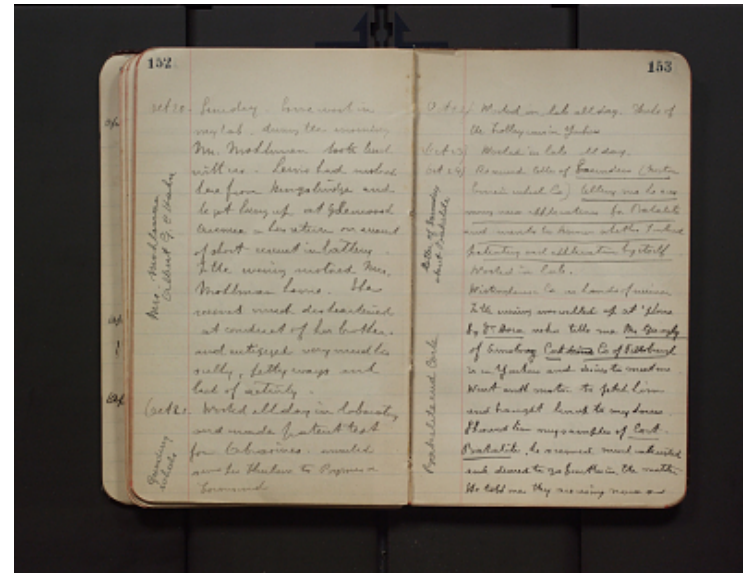 152
Oct 20. Sunday. Some work in
my lab. during the morning
Mrs. Modhman took lunch
with us. Lewis had motored
here from Kingsbridge and
he got hung up at Glenwood
Avenue on his return on account
of short current in battery.
In the evening motored Mrs.
Modhman home. She
seemed much disheartened
at conduct of her brother
and very much his
silly, petty ways and
lack of activity.
Oct 21. Worked all day in laboratory
and made patent test
for abrasives.
Mrs. Modhman
Albert G. C. Hahn
Grinding
wheels
153
Oct 22) Worked in lab all day.
the Trolley cars in Yonkers
Oct 23) Worked in lab all day.
Oct 24) Received letter of Saunders (
Emery wheel Co) telling me he sees
many new applications for Bakalite
and wants to know whether I intend
patenting said application by itself
Worked in Lab.
Co in hands of receiver
In the evening was called up at 'phone
by Dr Dora who tells me Mr
of Armstrong Cork Co of Pittsburgh
is in Yonkers and desires to meet me
Went with motor to fetch him
and brought him up to my house.
Showed him my samples of Cork-
Bakalite, he seemed much interested
and desired to go further in the matter
He told me they are using now
letter of Saunders
about Bakalite
Bakalite and Cork